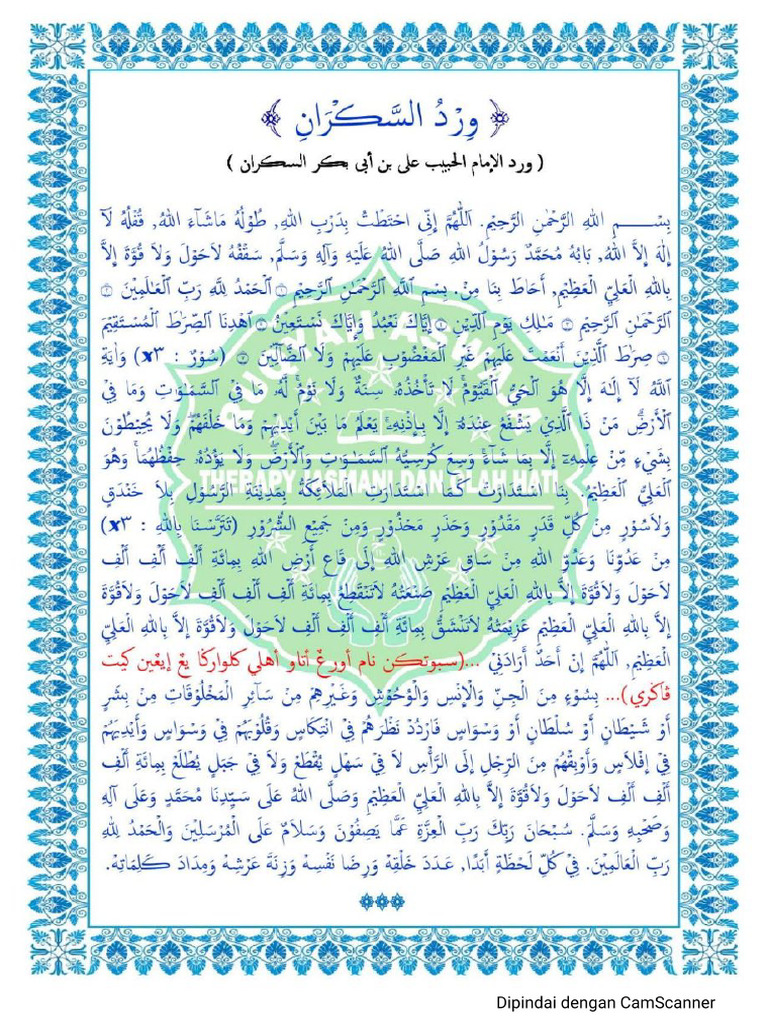 ﴿ وِرْدُ السَّكْرَانِ ﴾
( ورد الإمام الحبيب على بن أبى بكر السكران )
بِسْـــــمِ اللهِ الرَّحْمٰنِ الرَّحِيْمِ. اَللّٰهُمَّ اِنِّى احْتَطْتُ بِدَرْبِ اللهِ, طُوْلُهُ مَاشَآءَ اللهُ, قُفْلُهُ لَآ
إِلٰهَ إِلاَّ اللهُ, بَابُهُ مُحَمَّدٌ رَسُوْلُ اللهِ صَلَّى اللهُ عَلَيْهِ وَآلِهِ وَسَلَّمَ, سَقْفُهُ لَاحَوْلَ وَلَا قُوَّةَ إِلاَّ
بِاللهِ الْعَلِيِّ الْعَظِيْمِ, أَحَاطَ بِنَا مِنْ. بِسْمِ ٱللَّهِ ٱلرَّحْمَـٰنِ ٱلرَّحِيْمِ ۝١ ٱلْحَمْدُ لِلَّهِ رَبِّ ٱلْعَـٰلَمِيْنَ ۝٢
ٱلرَّحْمَـٰنِ ٱلرَّحِيْمِ ۝٣ مَـٰلِكِ يَوْمِ ٱلدِّيْنِ ۝٤ إِيَّاكَ نَعْبُدُ وَإِيَّاكَ نَسْتَعِيْنُ ۝٥ ٱهْدِنَا ٱلصِّرَٰطَ ٱلْمُسْتَقِيْمَ
۝٦ صِرَٰطَ ٱلَّذِيْنَ أَنْعَمْتَ عَلَيْهِمْ غَيْرِ ٱلْمَغْضُوْبِ عَلَيْهِمْ وَلَا ٱلضَّآلِّيْنَ ۝٧ (سُوْرٌ : ٣×) وَاٰيَةِ
ٱللَّهُ لَآ إِلَـٰهَ إِلَّا هُوَ ٱلْحَيُّ ٱلْقَيُّوْمُ لَا تَأْخُذُهُۥ سِنَةٌ وَلَا نَوْمٌ لَّهُۥ مَا فِي ٱلسَّمَـٰوَٰتِ وَمَا فِي
ٱلْأَرْضِ مَنْ ذَا ٱلَّذِيْ يَشْفَعُ عِنْدَهُۥٓ إِلَّا بِإِذْنِهِۦ يَعْلَمُ مَا بَيْنَ أَيْدِيْهِمْ وَمَا خَلْفَهُمْ وَلَا يُحِيْطُوْنَ
بِشَيْءٍ مِّنْ عِلْمِهِۦٓ إِلَّا بِمَا شَآءَ وَسِعَ كُرْسِيُّهُ ٱلسَّمَـٰوَٰتِ وَٱلْأَرْضَ وَلَا يَؤُدُهُۥ حِفْظُهُمَا وَهُوَ
ٱلْعَلِيُّ ٱلْعَظِيْمُ بِنَا اسْتَدَارَتْ كَمَا اسْتَدَارَتِ الْمَلاَئِكَةُ بِمَدِيْنَةِ الرَّسُوْلِ بِلاَ خَنْدَقٍ
وَلاَسُوْرٍ مِنْ كُلِّ قَدَرٍ مَقْدُوْرٍ وَحَذَرٍ مَحْذُوْرٍ وَمِنْ جَمِيْعِ الشُّرُوْرِ (تَتَرَّسْنَا بِاللهِ : ٣×)
مِنْ عَدُوِّنَا وَعَدُوِّ اللهِ مِنْ سَاقِ عَرْشِ اللهِ إِلَى قَاعِ أَرْضِ اللهِ بِمِائَةِ أَلْفِ أَلْفِ أَلْفِ
لاَحَوْلَ وَلاَقُوَّةَ إِلاَّ بِاللهِ الْعَلِيِّ الْعَظِيْمِ صَنْعَتُهُ لاَتَنْقَطِعُ بِمِائَةِ أَلْفِ أَلْفِ أَلْفِ لاَحَوْلَ وَلاَقُوَّةَ
إِلاَّ بِاللهِ الْعَلِيِّ الْعَظِيْمِ عَزِيْمَتُهُ لاَتَنْشَقُّ بِمِائَةِ أَلْفِ أَلْفِ أَلْفِ لاَحَوْلَ وَلاَقُوَّةَ إِلاَّ بِاللهِ الْعَلِيِّ
الْعَظِيْمِ, اَللّٰهُمَّ إِنْ أَحَدٌ أَرَادَنِي ...(سبوتكن نام أورڠ أتاو أهلي كلواركا يڠ إيڠين كيت
ڤاكري)... بِسُوْءٍ مِنَ الْجِنِّ وَالْإِنْسِ وَالْوُحُوْشِ وَغَيْرِهِمْ مِنْ سَآئِرِ الْمَخْلُوْقَاتِ مِنْ بَشَرٍ
أَوْ شَيْطَانٍ أَوْ سُلْطَانٍ أَوْ وَسْوَاسٍ فَارْدُدْ نَظَرَهُمْ فِيْ انْتِكَاسٍ وَقُلُوْبَهُمْ فِيْ وَسْوَاسٍ وَأَيْدِيَهُمْ
فِيْ إِفْلَاسٍ وَأَوْبِقْهُمْ مِنَ الرِّجْلِ إِلَى الرَّأْسِ لاَ فِيْ سَهْلٍ يُقْطَعُ وَلاَ فِيْ جَبَلٍ يُطْلَعُ بِمِائَةِ أَلْفِ
أَلْفِ أَلْفِ لاَحَوْلَ وَلاَقُوَّةَ إِلاَّ بِاللهِ الْعَلِيِّ الْعَظِيْمِ وَصَلَّى اللهُ عَلَى سَيِّدِنَا مُحَمَّدٍ وَعَلَى آلِهِ
وَصَحْبِهِ وَسَلَّمَ. سُبْحَانَ رَبِّكَ رَبِّ الْعِزَّةِ عَمَّا يَصِفُوْنَ وَسَلاَمٌ عَلَى الْمُرْسَلِيْنَ وَالْحَمْدُ لِلهِ
رَبِّ الْعَالَمِيْنَ. فِيْ كُلِّ لَحْظَةٍ أَبَدًا, عَدَدَ خَلْقِهِ وَرِضَا نَفْسِهِ وَزِنَةَ عَرْشِهِ وَمِدَادَ كَلِمَاتِهِ.
RUQYAH ASWAJA
THERAPY JASMANI DAN OLAH HATI
Dipindai dengan CamScanner